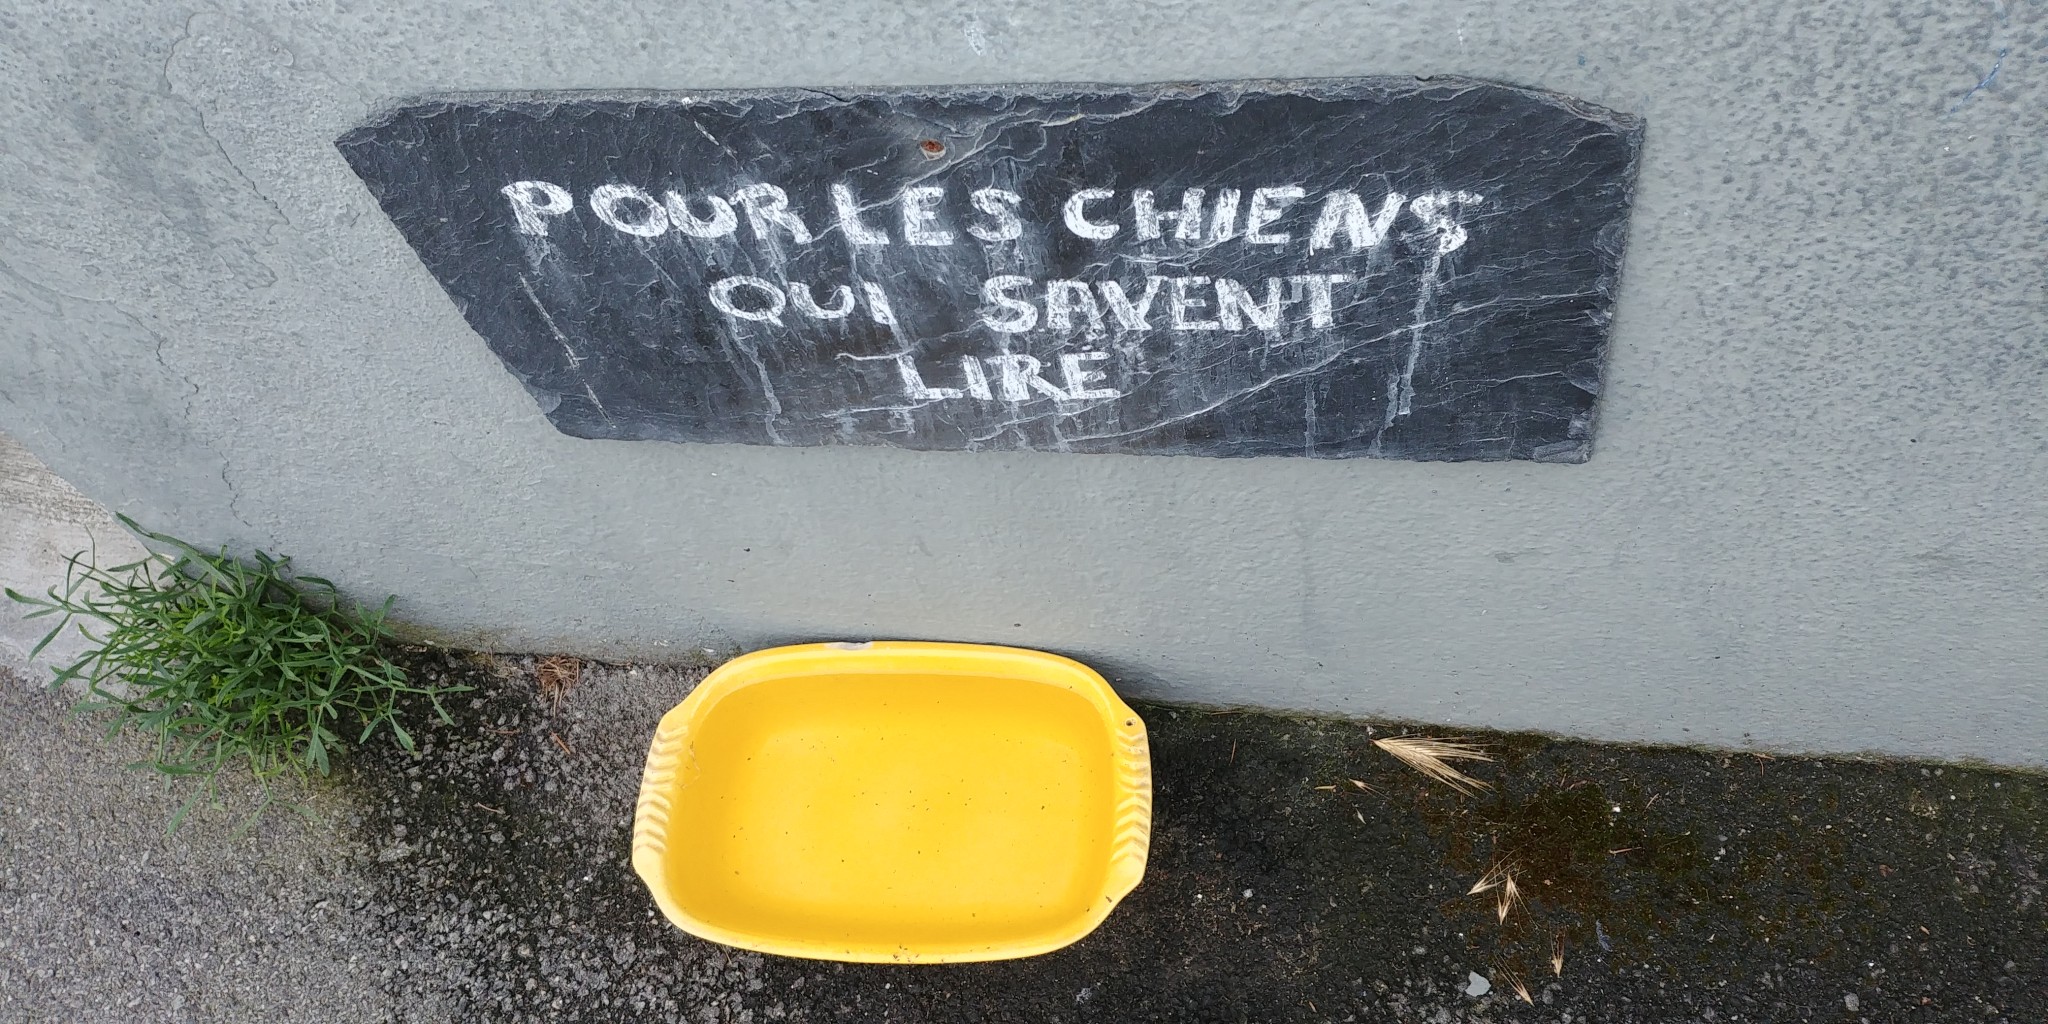 POUR LES CHIENS
QUI SAVENT
LIRE